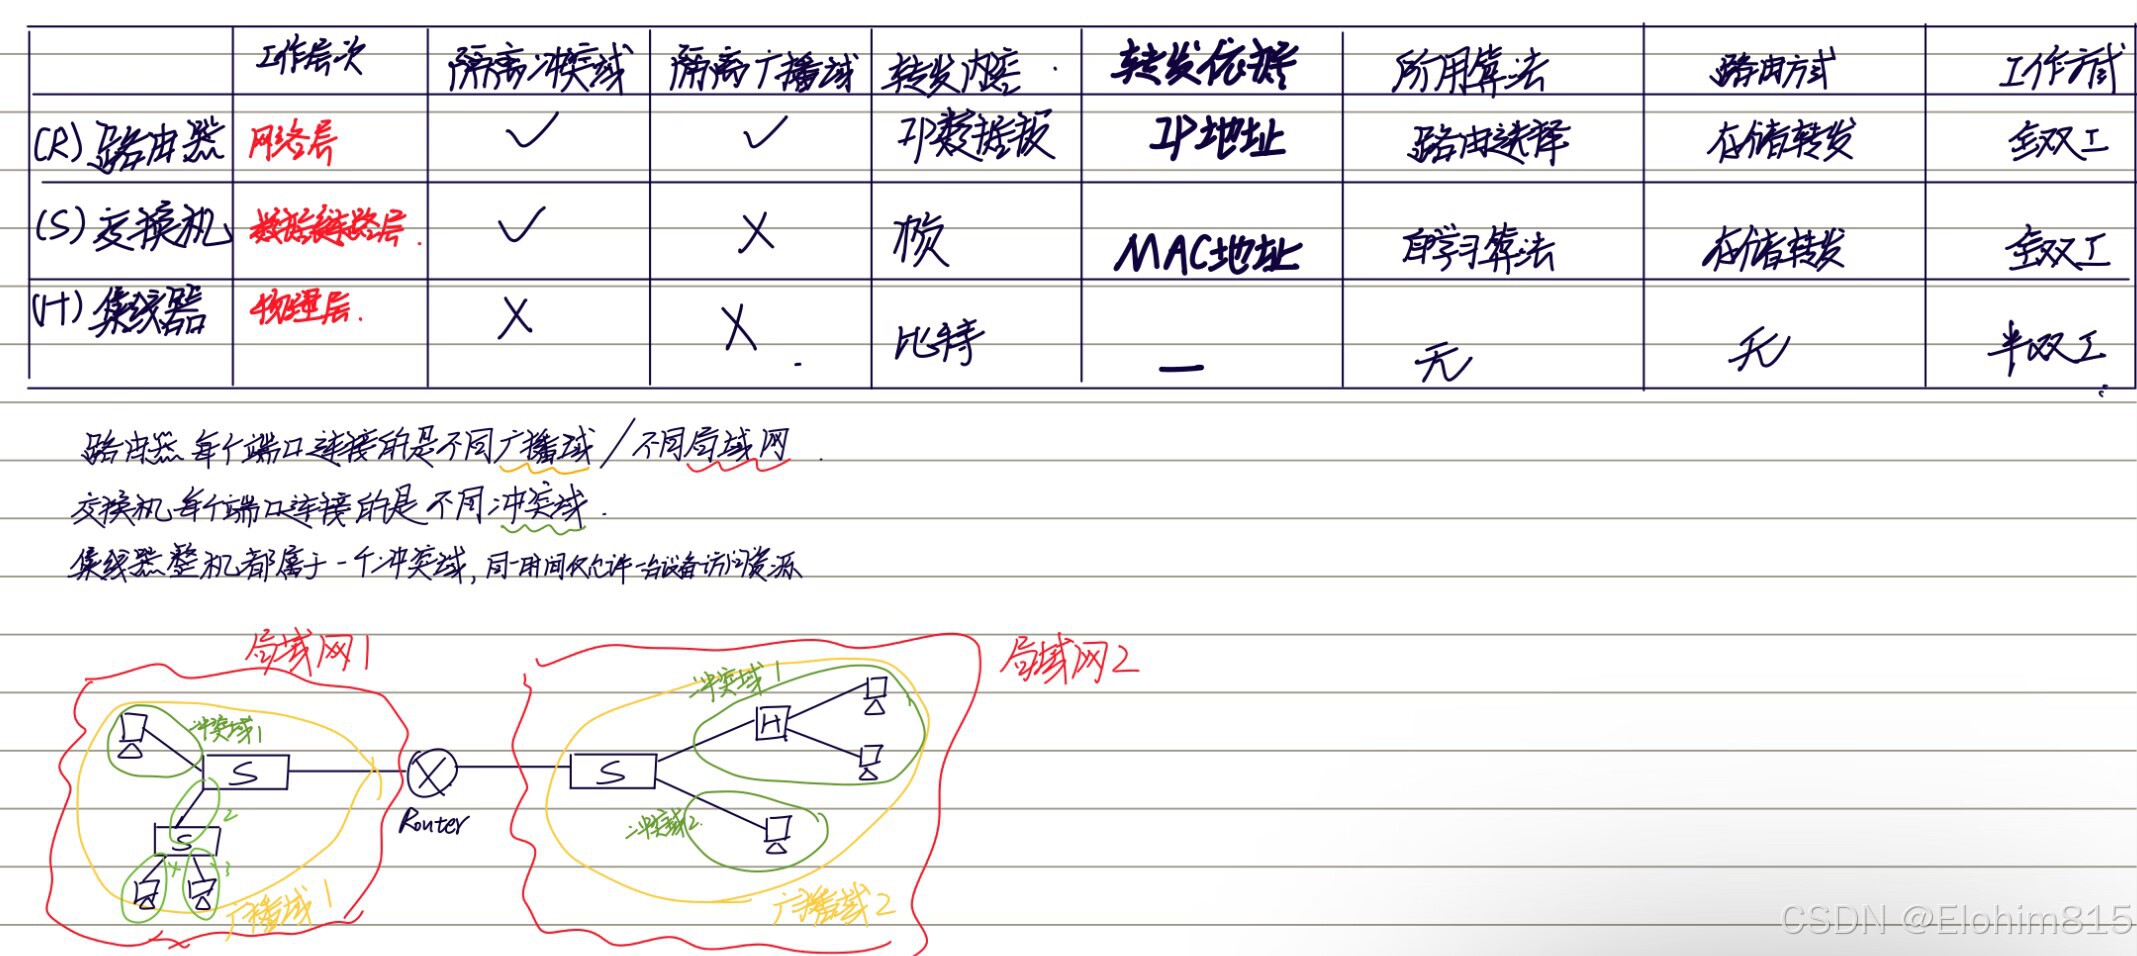 工作层次 隔离冲突域 隔离广播域 转发内容 转发依据 所用算法 路由方式 工作方式
(R)路由器 网络层 ✓ ✓ IP数据报 IP地址 路由选择 存储转发 全双工
(S)交换机 数据链路层. ✓ X 帧 MAC地址 自学习算法 存储转发 全双工
(H)集线器 物理层. X X 比特 — 无 无 半双工
路由器每个端口连接的是不同广播域/不同局域网.
交换机每个端口连接的是不同冲突域.
集线器整机都属于一个冲突域,同一时间仅允许一台设备访问资源
局域网1
局域网2
冲突域1
冲突域1
H
S
S
Router
2
冲突域2
S
4
3
广播域1
广播域2
CSDN @Elohim815